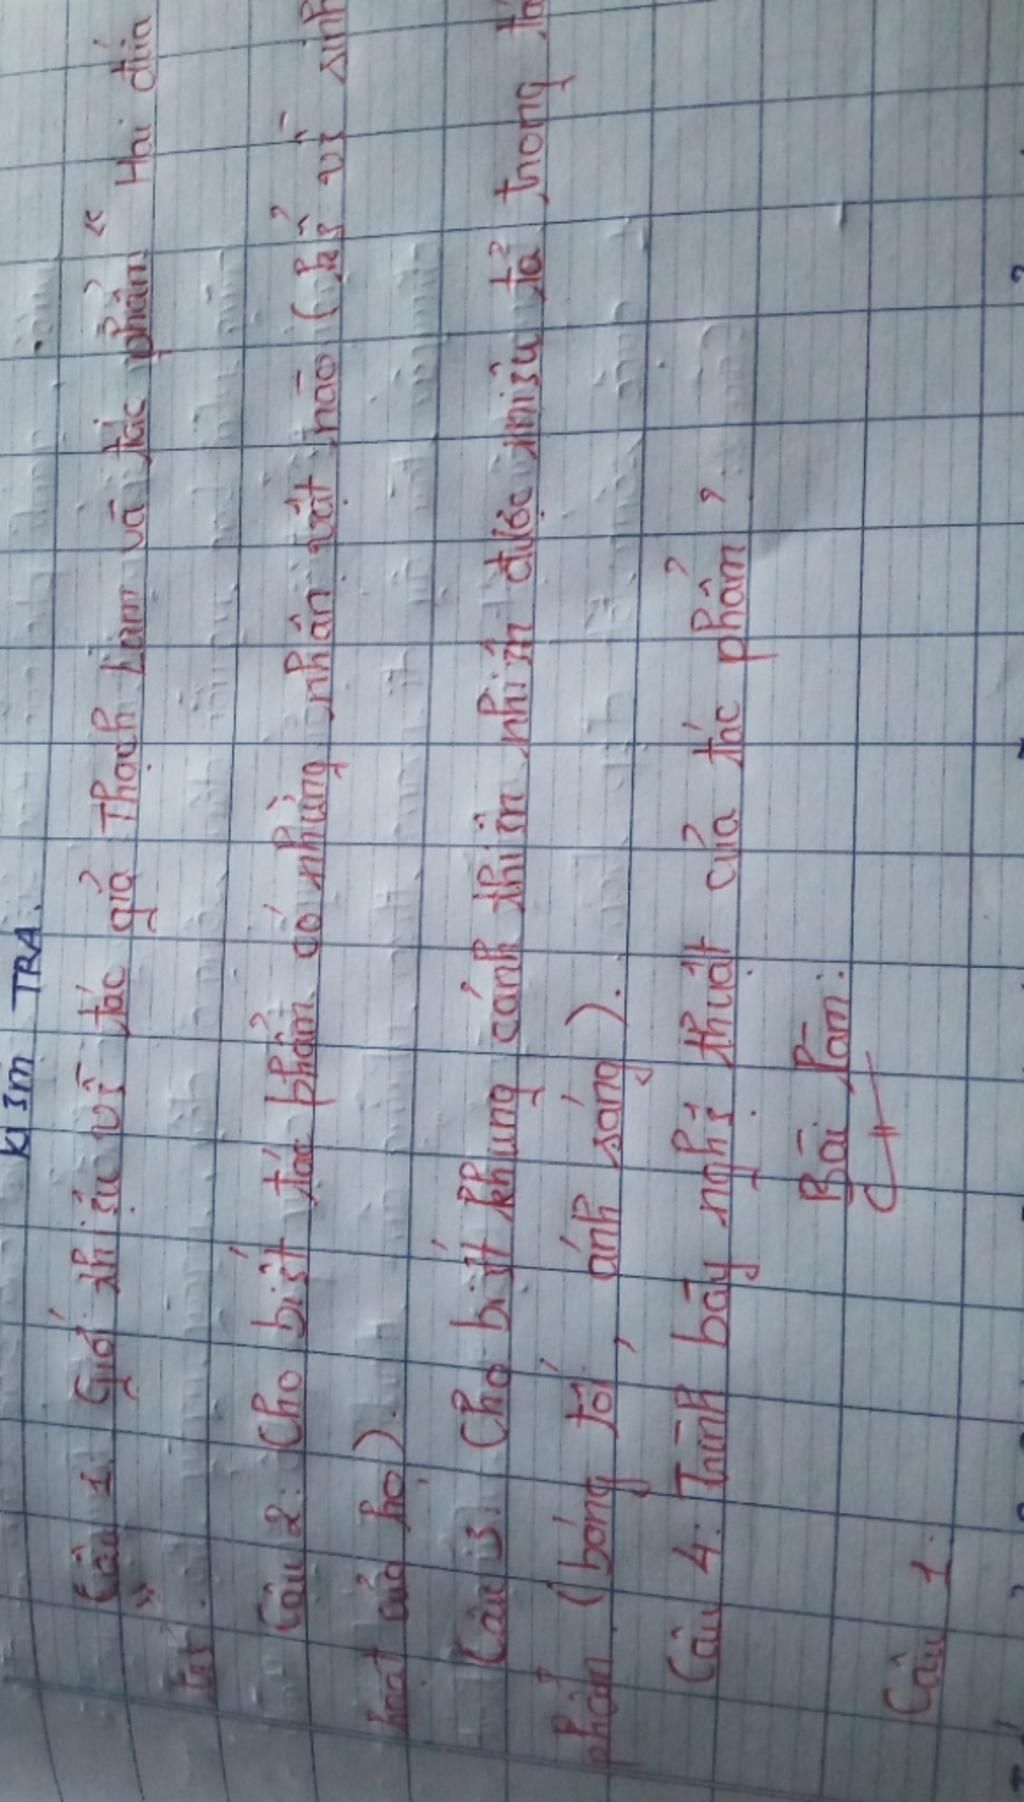 KIỂM TRA.
Câu 1. Giới thiệu về tác giả Thạch Lam và tác phẩm " Hai đứa
trẻ".
Câu 2: Cho biết tác phẩm có những nhân vật nào (kể về sinh
hoạt của họ).
Câu 3. Cho biết khung cảnh thiên nhiên được miêu tả trong tá
phẩm. (bóng tối, ánh sáng).
Câu 4: Trình bày nghệ thuật của tác phẩm?
Bài làm:
Câu 1.